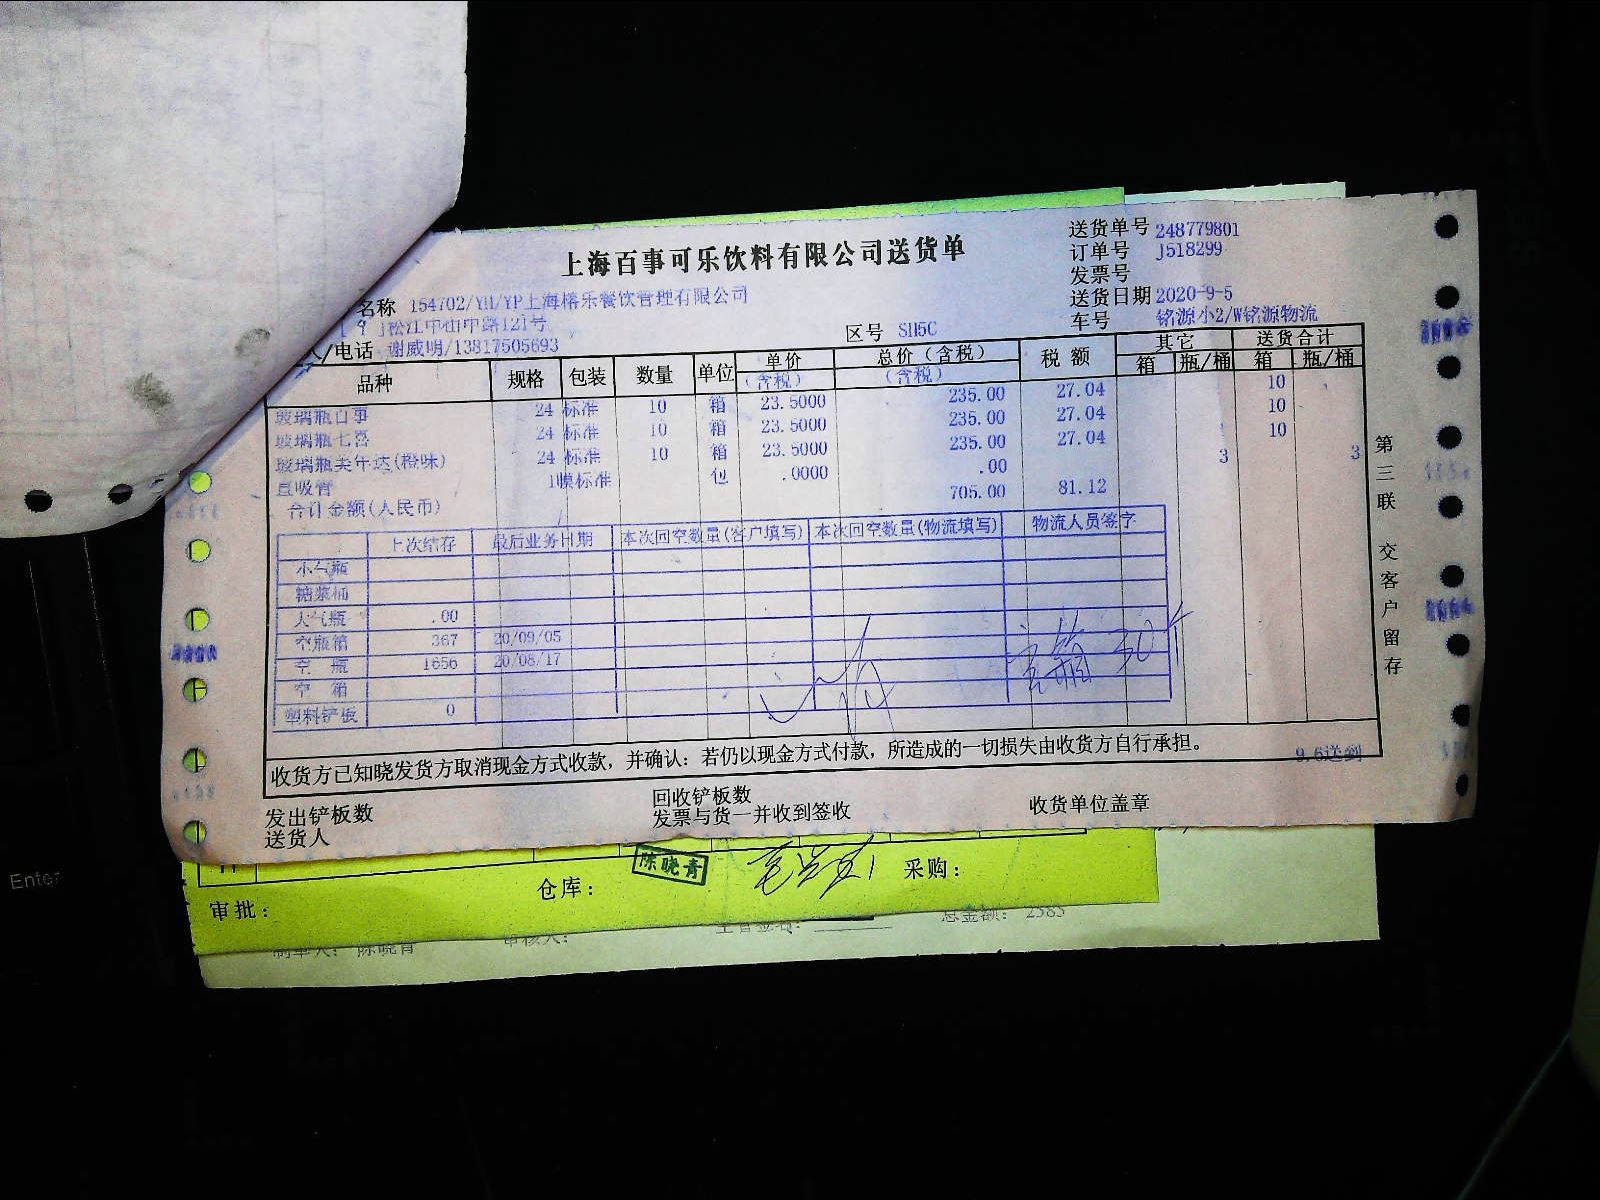 上海百事可乐饮料有限公司送货单
送货单号 248779801
订单号 J518299
发票号
送货日期 2020-9-5
车号 铭源小2/W铭源物流
名称 154702/YH/YP上海榕乐餐饮管理有限公司
松江中山中路121号
人/电话 谢威明/13817505693
区号 SH5C
品种 规格 包装 数量 单位 单价 (含税) 总价(含税) (含税) 税额 其它 箱 瓶/桶 送货合计 箱 瓶/桶
玻璃瓶百事 24 标准 10 箱 23.5000 235.00 27.04 10
玻璃瓶七喜 24 标准 10 箱 23.5000 235.00 27.04 10
玻璃瓶美年达(橙味) 24 标准 10 箱 23.5000 235.00 27.04 10
直吸管 1膜标准 包 .0000 .00 3 3
合计金额(人民币) 705.00 81.12
上次结存 最后业务日期 本次回空数量(客户填写) 本次回空数量(物流填写) 物流人员签字
小气瓶
糖浆桶
大气瓶 .00
空瓶箱 367 20/09/05
空瓶 1656 20/08/17
空箱
塑料铲板 0
收货方已知晓发货方取消现金方式收款，并确认：若仍以现金方式付款，所造成的一切损失由收货方自行承担。
9.6送到
发出铲板数 回收铲板数
送货人 发票与货一并收到签收 收货单位盖章
第三联 交客户留存
审批： 仓库： 陈晓青 采购：
制单人： 陈晓青 审核人： 主管签名： 总金额： 2585
Enter